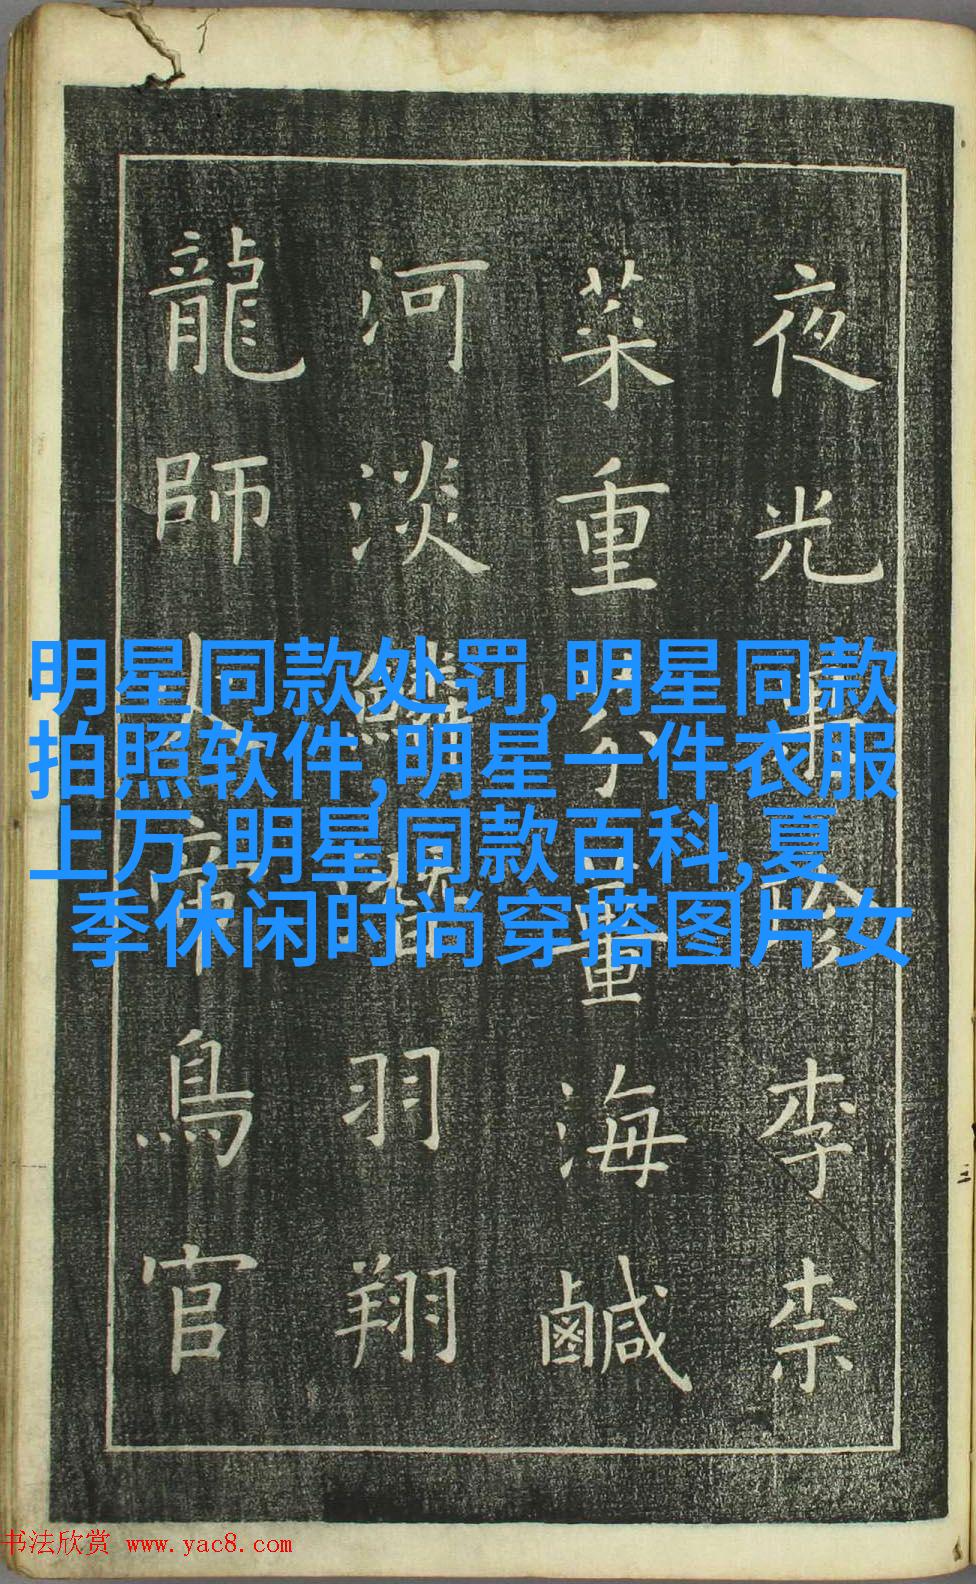 夜光珍李柰
菜重芥薑海鹹
河淡鱗潛羽翔
龍師火帝鳥官
明星同款处罚,明星同款
拍照软件,明星一件衣服
上万,明星同款百科,夏
季休闲时尚穿搭图片女
书法欣赏 www.yac8.com